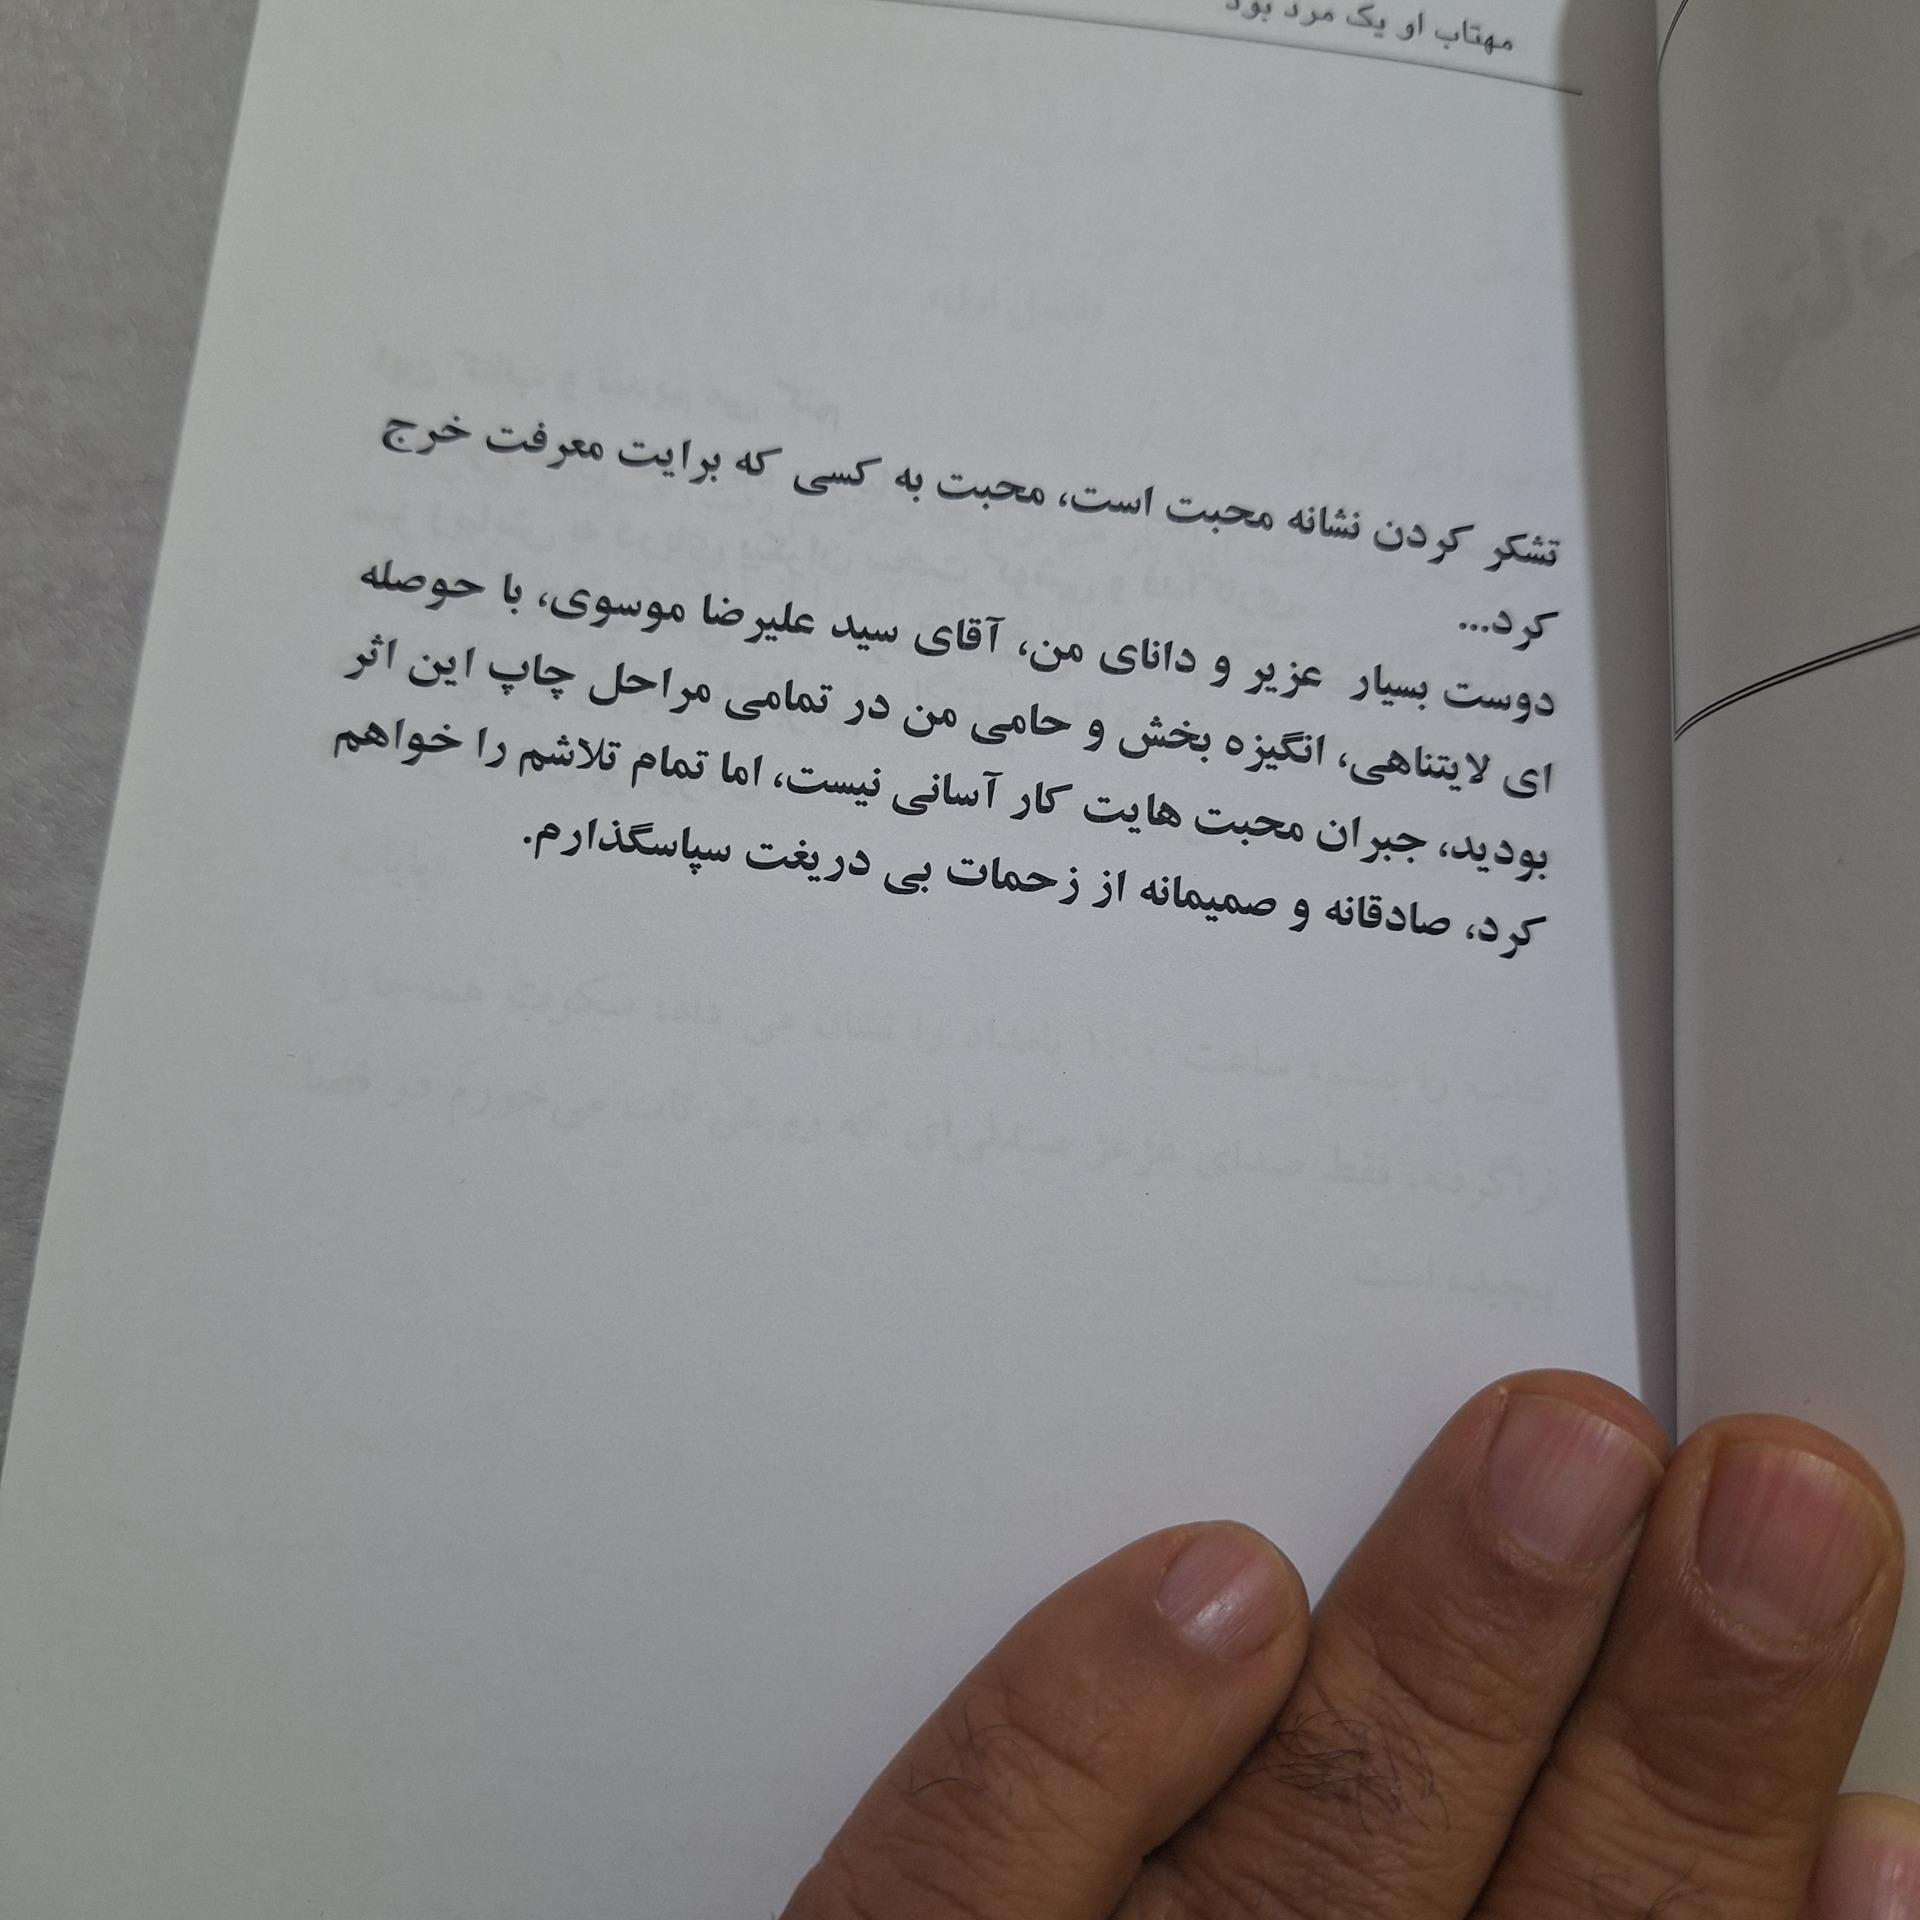 مهتاب او یک مرد بود
تشکر کردن نشانه محبت است، محبت به کسی که برایت معرفت خرج
کرد...
دوست بسیار عزیر و دانای من، آقای سید علیرضا موسوی، با حوصله
ای لایتناهی، انگیزه بخش و حامی من در تمامی مراحل چاپ این اثر
بودید، جبران محبت هایت کار آسانی نیست، اما تمام تلاشم را خواهم
کرد، صادقانه و صمیمانه از زحمات بی دریغت سپاسگذارم.